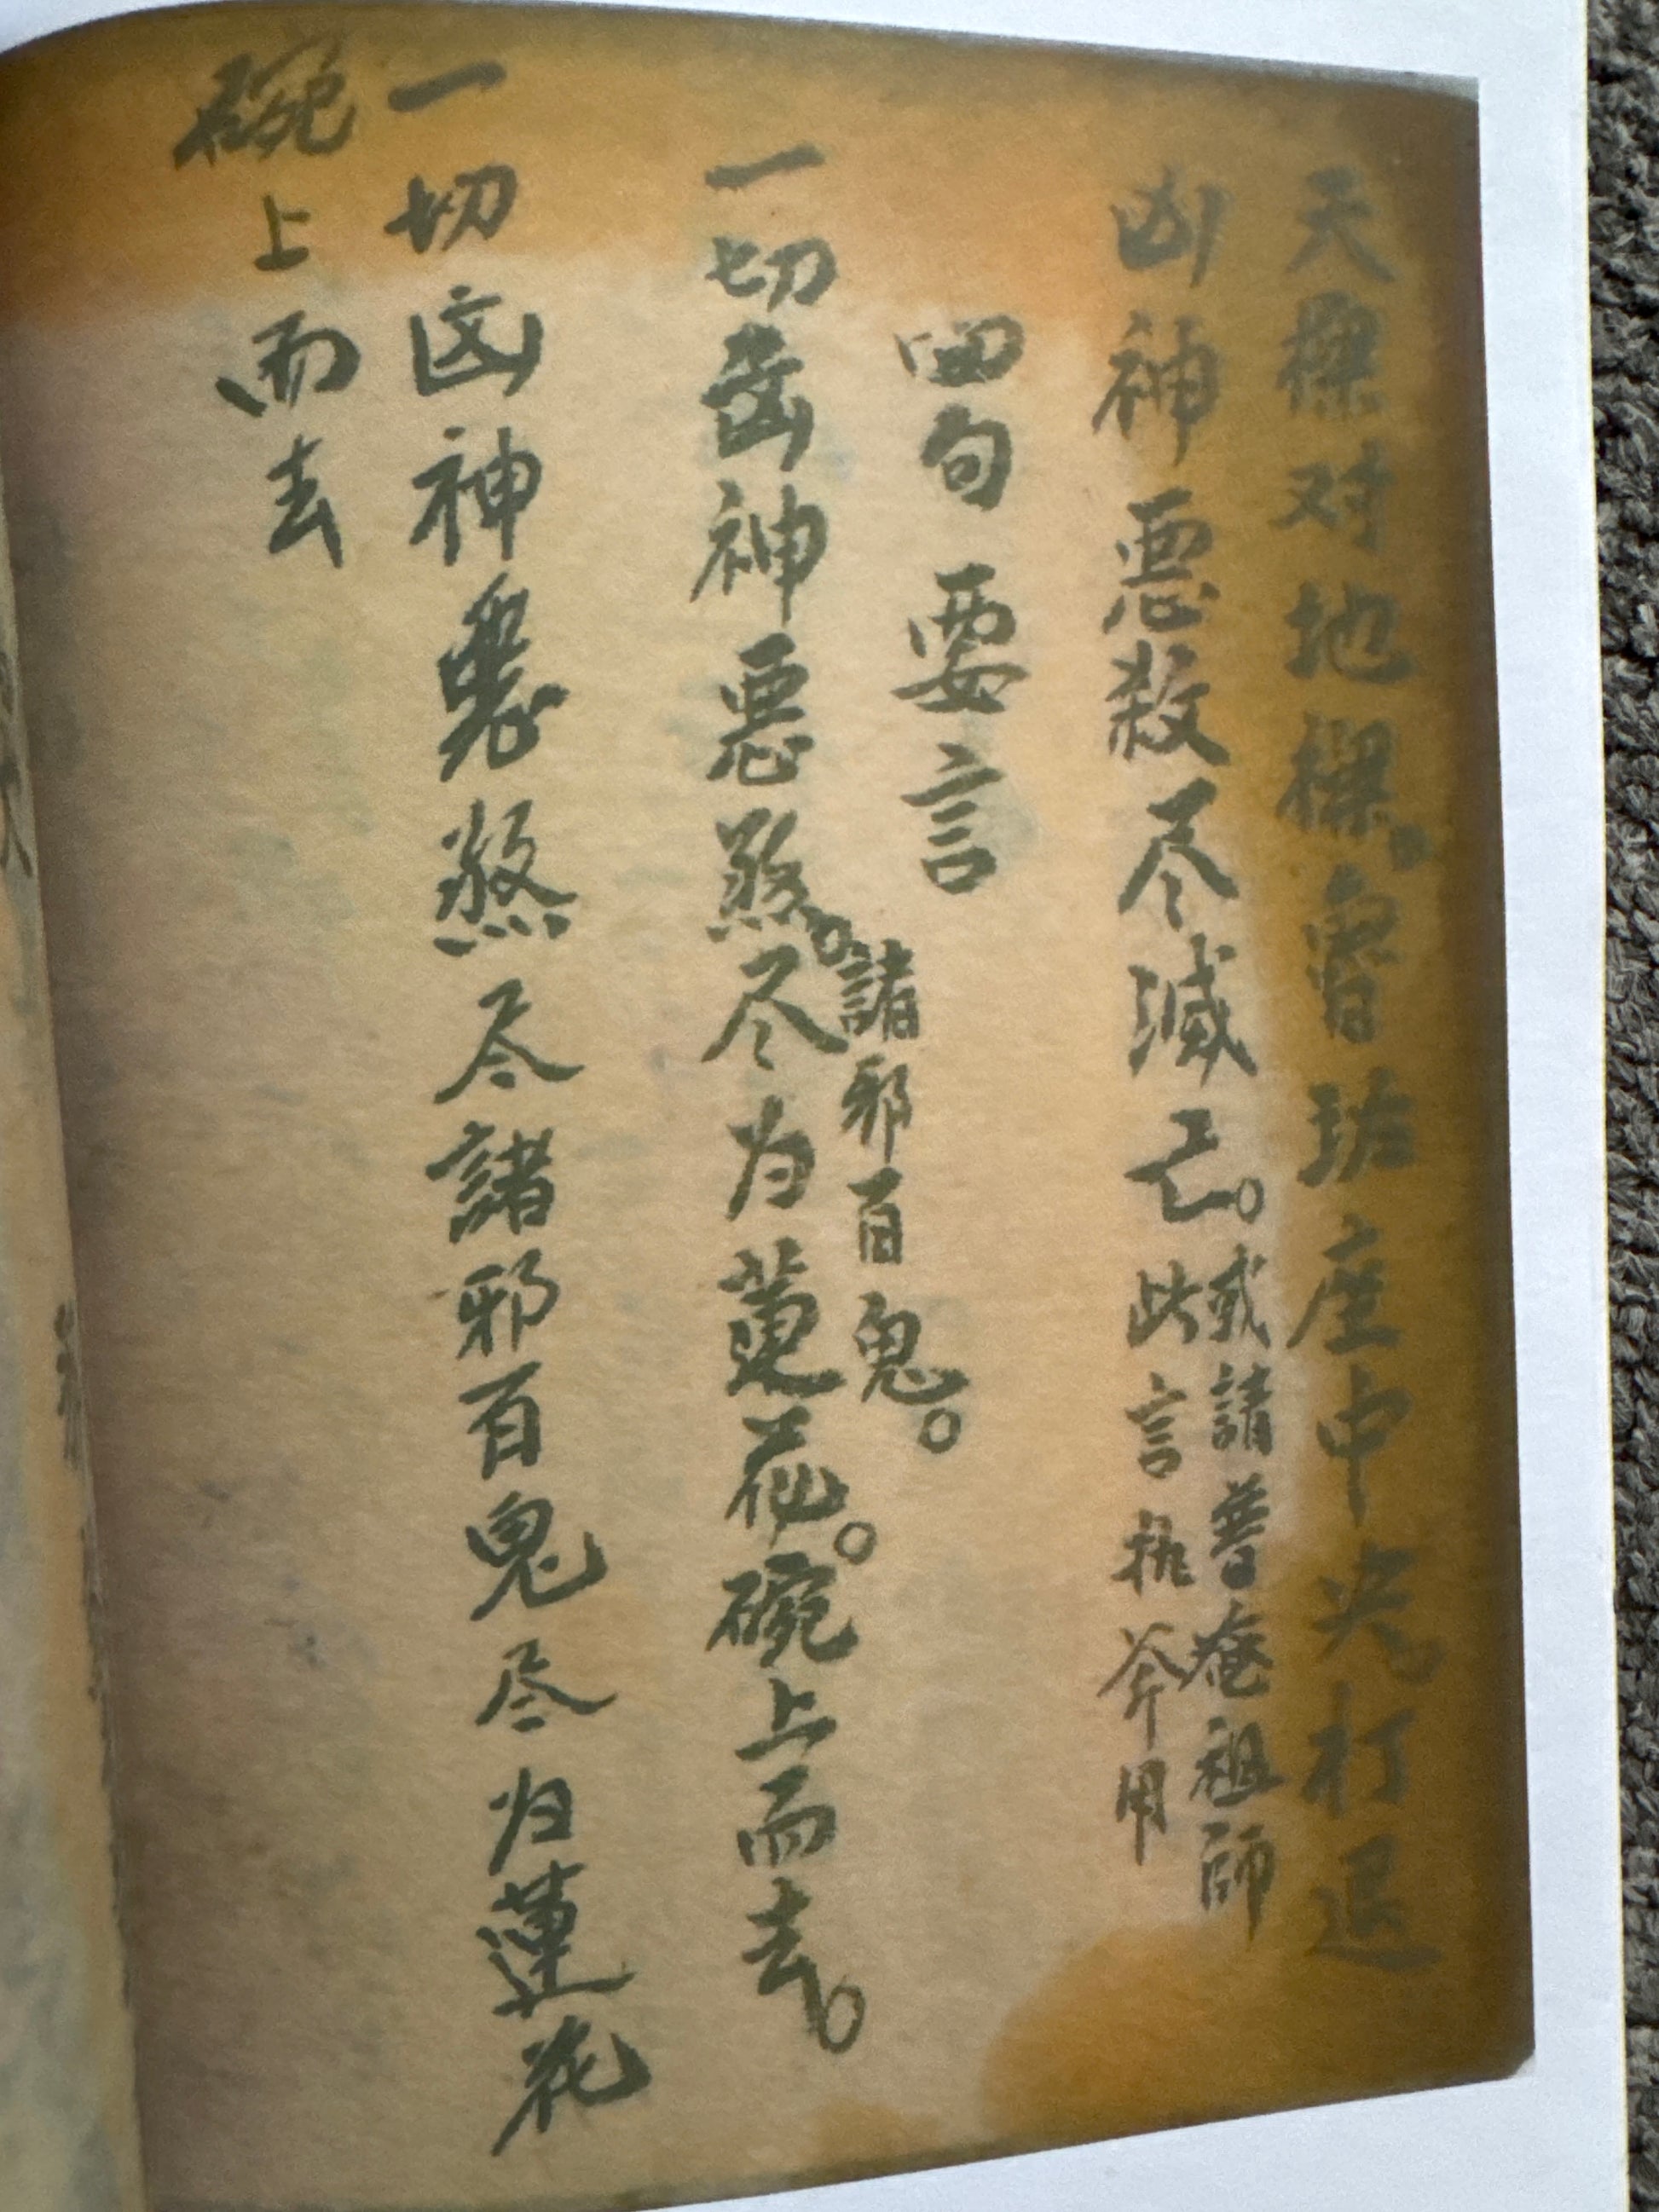 天樑对地樑。魯班座中央打退
凶神惡殺尽滅亡。
或請普庵祖師
此言執斧用
四句要言
諸邪百鬼。
一切凶神惡煞。尽为蓮花。碗上而去。
一切凶神惡煞尽諸邪百鬼尽归蓮花
碗上而去